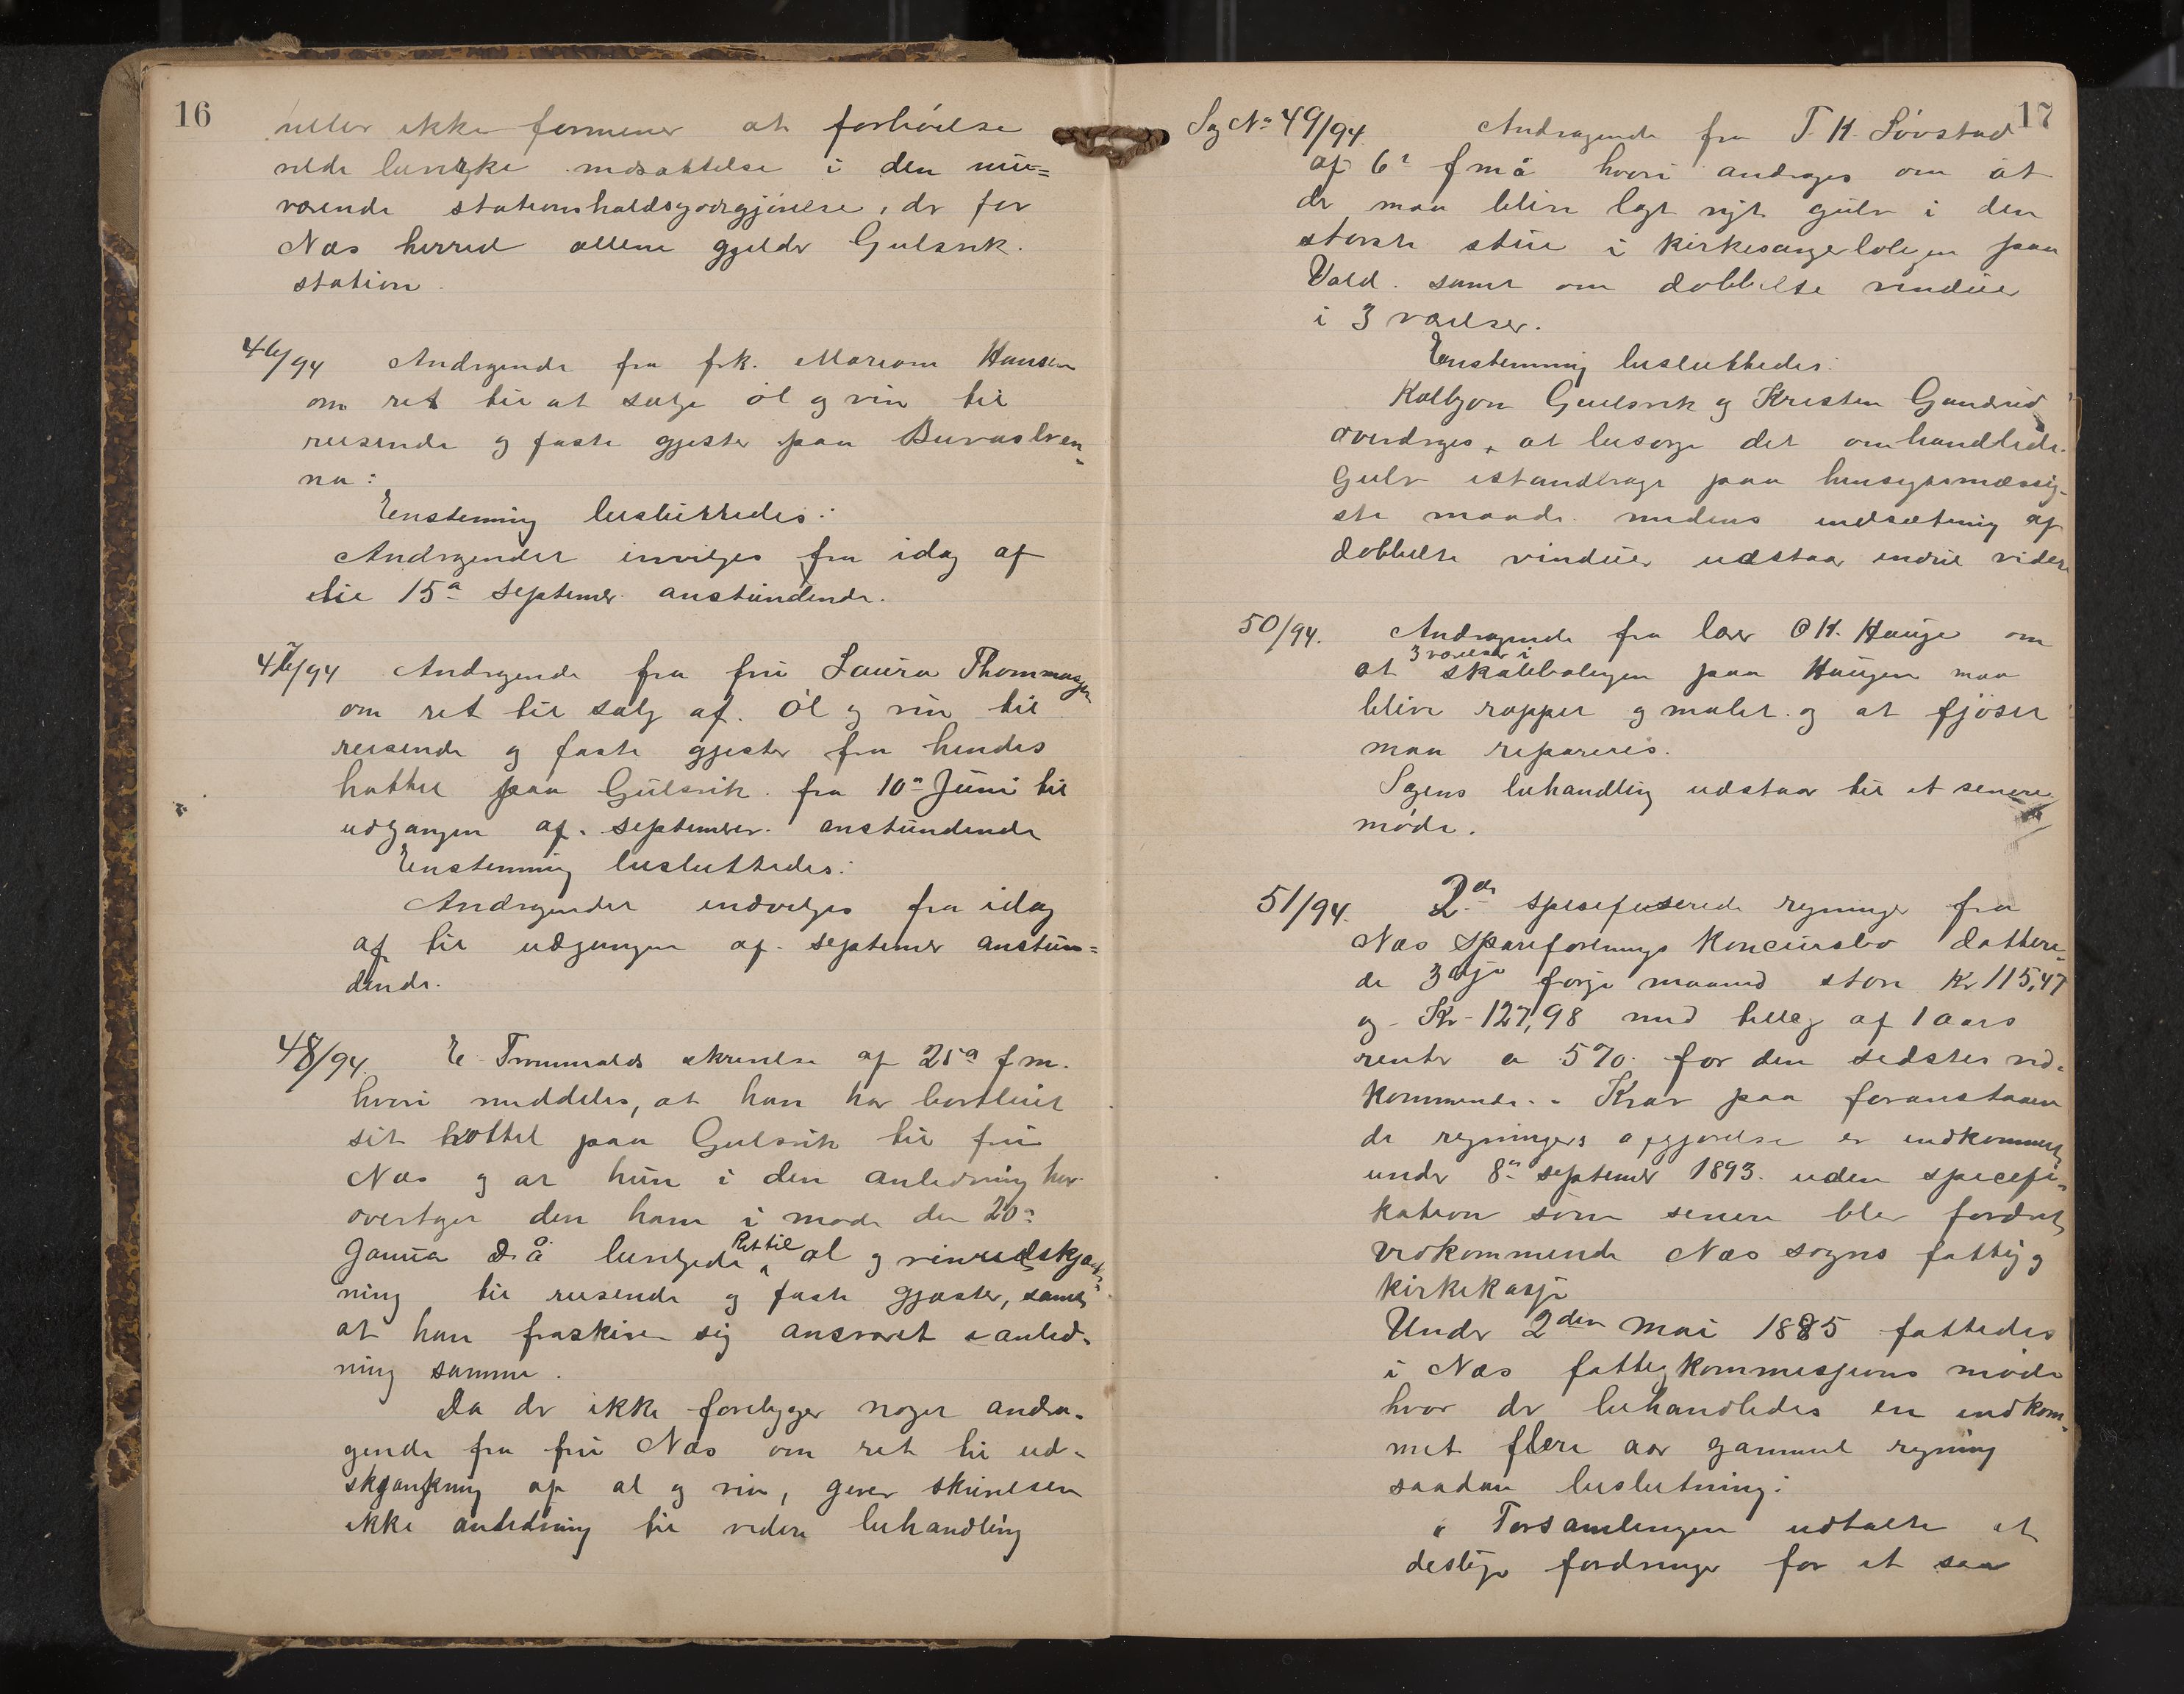 16
heller ikke formener at forhöielse
eller nedsættelse i den nu=
værende stationsholdsgodtgjörelse, der for
Næs herred allene gjelder Gulsvik
station.
46/94 Andragende fra frk. Mariane Hansen
om ret til at sælge öl og vin til
reisende og faste gjester paa Buvasbren-
na:
Enstemmig besluttedes:
Andragendet invilges fra idag af
til 15de september anstundende.
47/94 Andragende fra fru Laura Thommasen
om ret til salg af öl og vin til
reisende og faste gjester fra hendes
hottel paa Gulsvik fra 10de Juni til
udgangen af september anstundende
Enstemmig besluttedes:
Andragendet indvilges fra idag
af til udgangen af september anstun=
dende.
48/94. E Trommalds skrivelse af 25de f m.
hvori meddeles, at han har bortleiet
sit hottel paa Gulsvik til fru
Næs og at hun i den anledning har
overtaget den ham i möde den 20de
Januar d å bevilgede Ret til öl og vinudskjænk-
ning til reisende og faste gjæster, samt
at han fraskriver sig ansvaret i anled-
ning samme.
Da der ikke foreligger noget andra-
gende fra fru Næs om ret til ud-
skjænkning af öl og vin, giver skrivelsen
ikke anledning til videre behandling
17
Sag No 49/94. Andragende fra T. K. Lövstad
af 6te f må hvori andrages om at
der maa blive lagt nyt gulv i den
störste stue i kirkesangerboligen paa
Vold. samt om dobbelte vinduer
i 3 værelser.
Eenstemmig besluttedes:
Kolbjörn Gulsvik og Kristen Gandrud
overdrages, at besörge det omhandlede
gulv istandbragt paa hensigtsmæssig-
ste maade. medens indsætning af
dobbelte vinduer udstaar indtil videre
50/94. Andragende fra lærer O K. Hauge om
at 3 værelser i skolebolegen paa Haugen maa
blive rappet og malet og at fjöset
maa repareres.
Sagens behandling udstaar til et senere
möde.
51/94. 2de spesifuserede regninger fra
Næs Spareforenings Koncursbo dattere-
de 3dje forje maaned store Kr 115,47
og Kr 127,98 med tillæg af 1 aars
renter a 5% for den sidstes ved-
kommende. - Krav paa foranstaaen
de regningers opgjörelse er indkommet
under 8de september 1893. uden specefi-
kation som senere blev fordret
vedkommende Næs sogns fattig og
kirkekasse
Under 2den Mai 1885 fattedes
i Næs fattigkommissjons möde
hvor der behandledes en indkom-
met flere aar gammel regning
saadan beslutning:
" Forsamlingen udtalte at
deslige fordringer for et saa